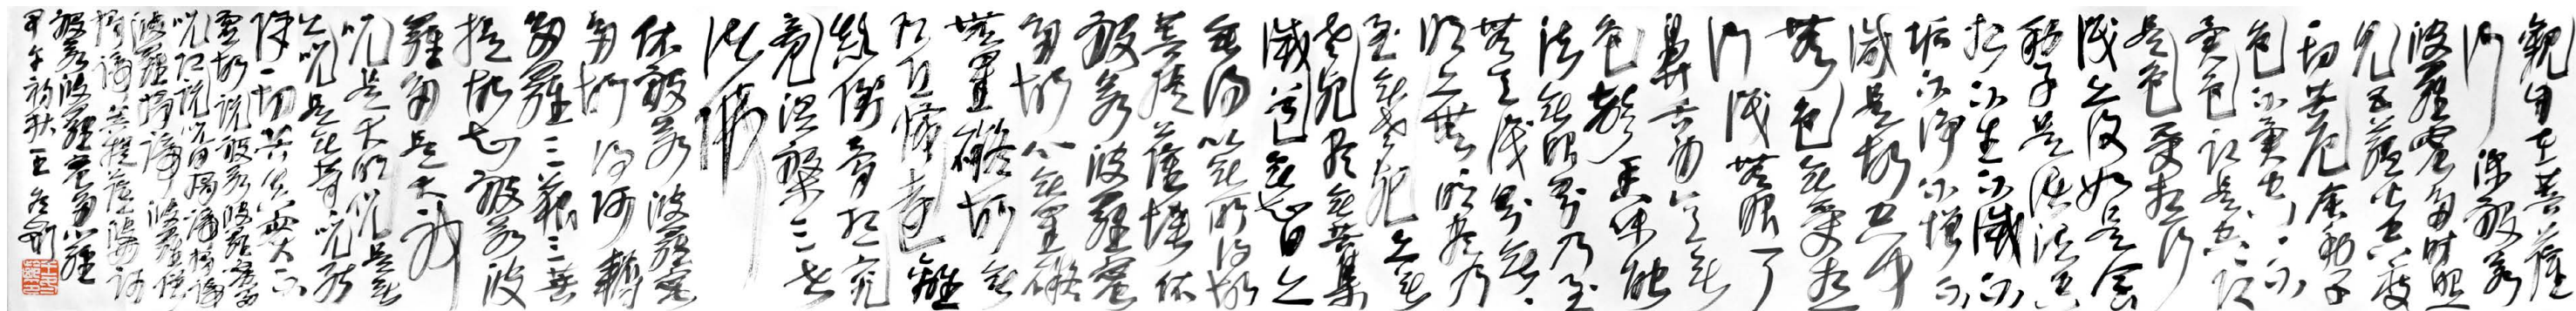 觀自在菩薩
行深般若
波羅蜜多時照
見五蘊皆空度一
切苦厄舍利子
色不異空空不
異色色即是空空即
是色受想行
識亦復如是舍
利子是諸法空
相不生不滅不
垢不淨不增不
減是故空中
無色無受想
行識無眼耳
鼻舌身意無
色聲香味觸
法無眼界乃至
無意識界無無
明亦無無明盡乃
至無老死亦無
老死盡無苦集
滅道無智亦
無得以無所得故
菩提薩埵依
般若波羅蜜
多故心無罣礙
無罣礙故無
有恐怖遠離
顛倒夢想究
竟涅槃三世
諸佛
依般若波羅蜜
多故得阿耨
多羅三藐三菩
提故知般若波
羅蜜多是大神
咒是大明咒是無
上咒是無等等咒能
除一切苦真實不
虛故說般若波羅蜜多
咒即說咒曰揭諦揭諦
波羅揭諦波羅僧
揭諦菩提薩婆訶
般若波羅蜜多心經
甲午初秋王冬齡